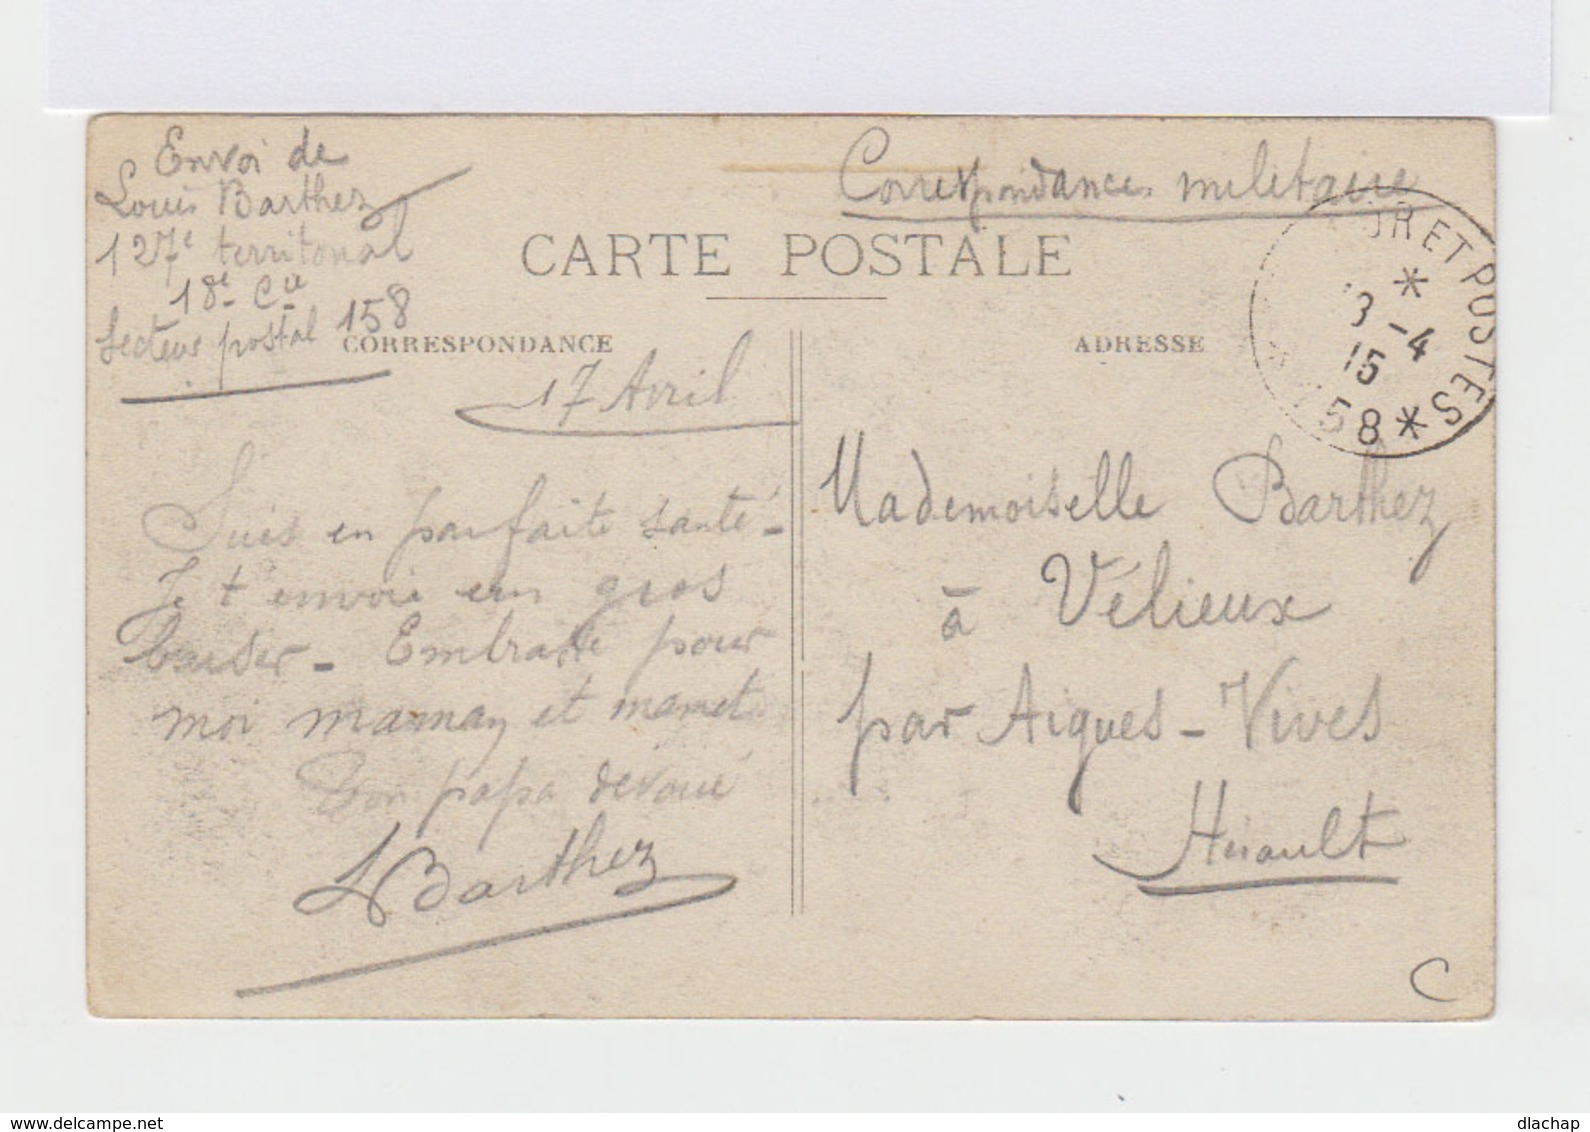 Envoi de
Louis Barthez
127e territorial
18e Cie
Secteur postal 158
Correspondance militaire
CARTE POSTALE
CORRESPONDANCE
17 Avril
Suis en parfaite santé -
Je t'envoie un gros
baiser - Embrasse pour
moi maman et mamet
Ton papa dévoué
L Barthez
ADRESSE
OR ET POSTES
* 
-4
15
58 *
Mademoiselle Barthez
à Vélieux
par Aigues-Vives
Hérault
C
www.delcampe.net
dlachap